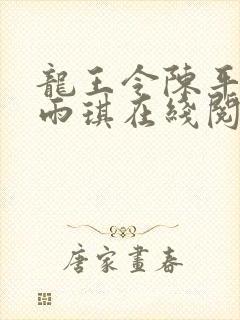 龍王令陳平
雨琪在綫閱
唐家畫春